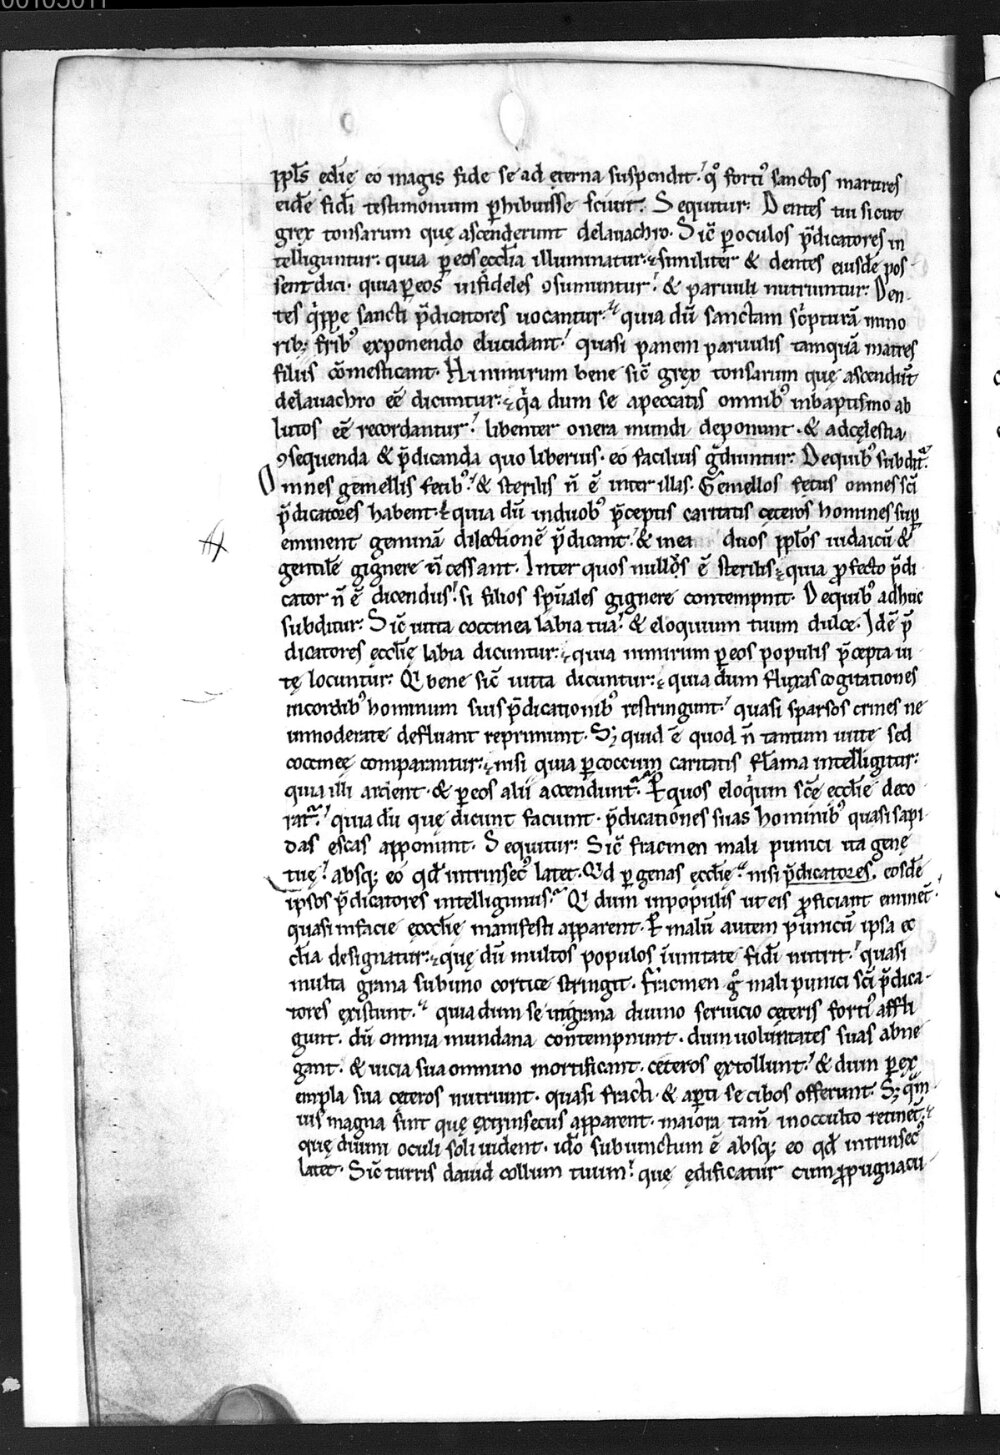 00103011
ppl̅s ed̅ie eo magis fide se ad ęterna suspendit. qͦ forti᷒ sanctos martires
eide̅ fid̅i testimonium ꝑhibuisse sciuit. Sequitur. Dentes tui sicut
grex tonsarum quę ascenderunt delauachro. Sic̅ ꝑ oculos p̅dicatores in
telliguntur. quia ꝑ eos ecc̅lia illuminatur. similiter & dentes eiusde̅ pos
sent dici. quia ꝑ eos infideles ꝯsumuntur. & paruuli nutriuntur. Den
tes q̍ppe sancti p̅dicatores uocantur. quia du̅ sanctam sc̍pturā mino
rib; fr̅ib᷒ exponendo elucidant. quasi panem paruulis tamquā matres
filiis co̅mesticant. Hi nimirum bene sic̅ grex tonsarum quę ascendūt
delauachro ee̅ dicuntur. q̍a dum se apeccatis omnib᷒ inbaptismo ab
lutos ee̅ recordantur. libenter onera mundi deponunt. & adcęlestia
ꝯsequenda & p̅dicanda quo liberius. eo facilius g̅diuntur. Dequib᷒ subdit̃.
Omnes gemellis fetib᷒. & sterilis n̅ e̅ inter illas. Gemellos fetus omnes sc̅i
p̅dicatores habent. quia du̅ induob᷒ p̅ceptis caritatis cęteros homines suꝑ
eminent geminā dilectione̅ p̅dicant. & inea duos ppl̅os iudaicu̅ &
gentile̅ gignere n̅ cessant. Inter quos nullꝰs e̅ sterilis. quia ꝓfecto p̅di
cator n̅ e̅ dicendus. si filios sp̅uales gignere contempnit. Dequib᷒ adhuc
subditur. Sic̅ uitta coccinea labia tua. & eloquium tuum dulce. Ide̅ p̅
dicatores ęccl̅ie labia dicuntur. quia nimirum ꝑ eos populis p̅cepta ui
tę locuntur. Q̍ bene sic̅ uitta dicuntur. quia dum fluxas cogitationes
incordib᷒ hominum suis p̅dicationib᷒ restringunt. quasi sparsos crines ne
inmoderate defluant reprimunt. S; quid e̅ quod n̅ tantum uitte sed
coccineę comparantur. nisi quia ꝑ coccum caritatis fla̅ma intelligitur.
quia illi ardent. & ꝑ eos alii accendunt̃. Ꝑ quos eloq̍um sc̅e ęccl̅ie deco
rat̃. quia du̅ quę dicunt faciunt. p̅dicationes suas hominib᷒ quasi sapi
das escas apponunt. Sequitur. Sic̅ fracmen mali punici ita genę
tuę. absq; eo qd̅ intrinsec᷒ latet. Qd̅ ꝑ genas ęccl̅ie. nisi p̅dicatores. eosde̅
ipsos p̅dicatores intelligimus. Q̍ dum inpopulis ut eis ꝓficiant eminet̃.
quasi infacie ęccl̅ie manifesti apparent. Ꝑ malu̅ autem punicu̅ ipsa ec
cl̅ia designatur. quę du̅ multos populos i̅unitate fid̅i nutrit. quasi
multa grana subuno cortice stringit. fracmen g̊ mali punici sc̅i p̅dica
tores existunt. quia dum se in̍grana diuino seruicio cęteris forti᷒ affli
gunt. du̅ omnia mundana contempnunt. dum uoluntates suas abne
gant. & uicia sua omnino mortificant. cęteros extollunt. & dum ꝑ ex
empla sua cęteros nutriunt. quasi fracti & aꝑti se cibos offerunt. S; qm̅
uis magna sint quę extrinsecus apparent. maiora tam̅ inocculto retinet̃.
quę diuini oculi soli uident. ido̅ subiunctum e̅ absq; eo qd̅ intrinsec᷒
latet. Sic̅ turris dauid collum tuum. que ędificatur cum ꝓpugnacu